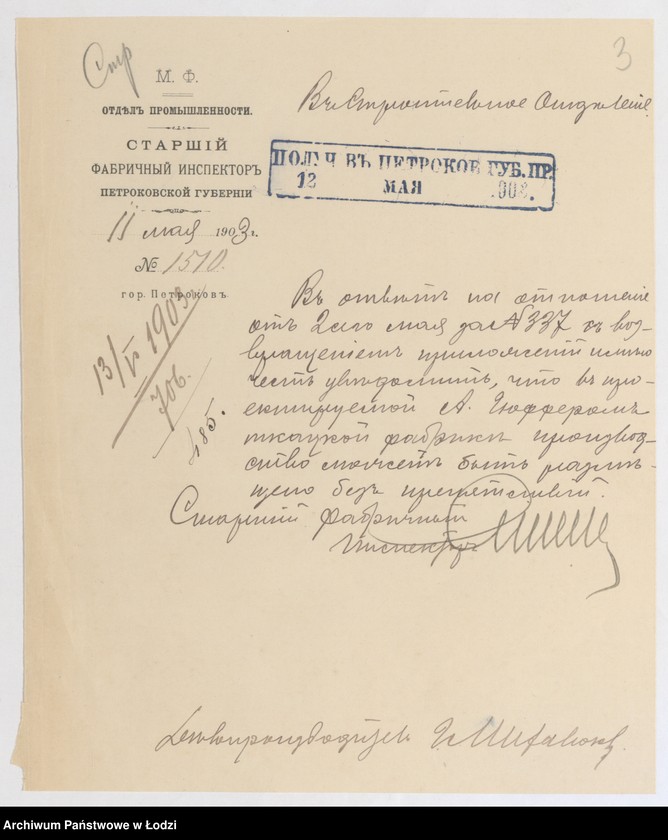 Стр
3
М. Ф.
ОТДѢЛЪ ПРОМЫШЛЕННОСТИ.
СТАРШІЙ
ФАБРИЧНЫЙ ИНСПЕКТОРЪ
ПЕТРОКОВСКОЙ ГУБЕРНІИ
11 мая 1903 г.
№ 1510.
гор. Петроковъ
Въ Строительное Отдѣленіе
ПОЛУЧ ВЪ ПЕТРОКОВ ГУБ. ПР.
12 МАЯ 903.
13/V 1903
706.
485.
Въ отвѣтъ на отношеніе
отъ 2 сего мая за № 337 съ воз-
вращеніемъ приложеній имѣю
честь увѣдомить, что въ про-
ектируемой А.
ткацкой фабрики производ-
ство можетъ быть размѣ-
щено безъ препятствій.
Старшій Фабричный
Инспекторъ
Дѣлопроизводитель
Archiwum Państwowe w Łodzi